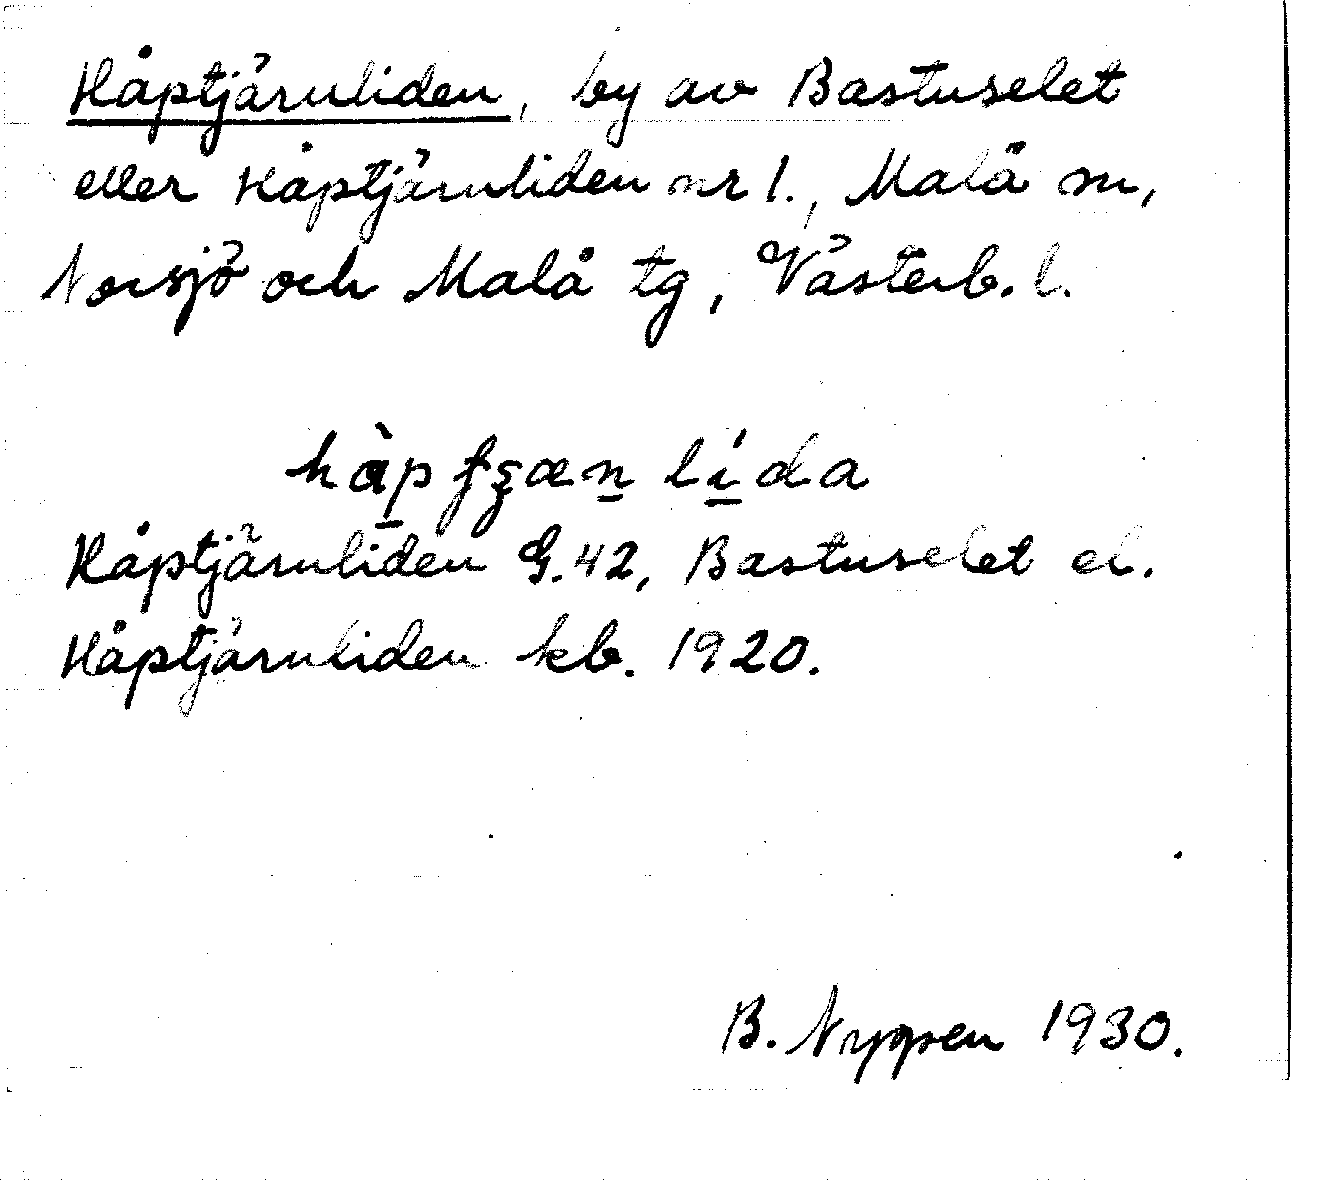 Håptjärnliden, by av Bastuselet
eller Håptjärnliden nr 1., Malå sn,
Norsjö och Malå tg, Västerb. l.
Håptjärnliden G.42, Bastuselet el.
Håptjärnliden kb. 1920.
B. 1930.